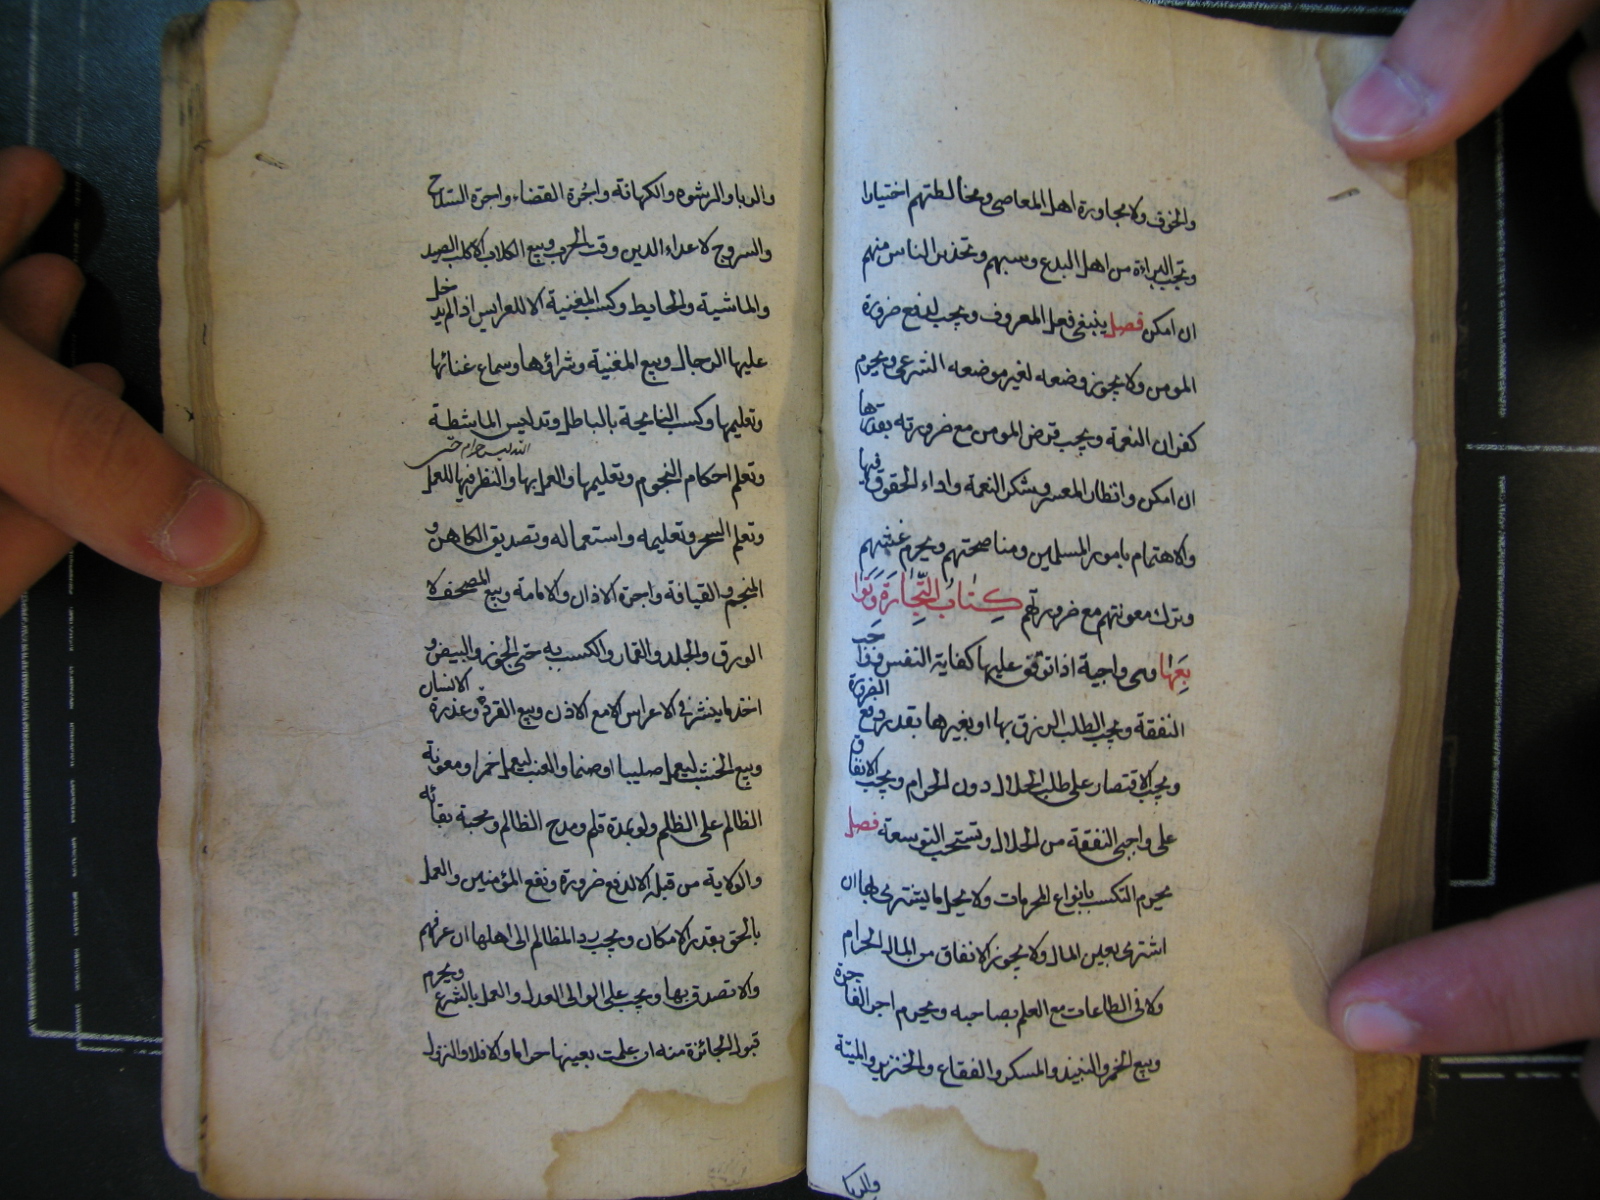 والخوف ولا مجاورة اهل المعاصي ومخالطتهم اختيارا
وتجب البراءة من اهل البدع وسبهم وتحذير الناس منهم
ان امكن فصل ينبغي فعل المعروف ويجب لدفع ضرورة
المومن ولا يجوز وضعه لغير موضعه الشرعي ويحرم
كفران النعمة ويجب قرض المومن مع ضرورته بقدرها
ان امكن وانظار المعسر وشكر النعمة واداء الحقوق فيها
والاهتمام بامور المسلمين ومناصحتهم ويحرم غشهم
وترك معونتهم مع ضرورتهم كِتابُ التِّجارَةِ وَتَوا
بِعَها وهي واجبة اذا توقف عليها كفاية النفس وواجب
النفقة ويجب الطلب الرزق بها او بغيرها بقدر دفع الضرورة
ويجب الاقتصار على طلب الحلال دون الحرام ويجب الانفاق
على واجبي النفقة من الحلال وتستحب التوسعة فصل
يحرم التكسب بانواع المحرمات ولا يحل ما يشترى بها ان
اشترى بعين المال ولا يجوز الانفاق من المال الحرام
ولا في الطاعات مع العلم بصاحبه ويحرم اجر الفاجرة
وبيع الخمر والنبيذ والمسكر والفقاع والخنزير والميتة
والربا
والربا والرشوه والكهانة واجُرة القضاء واجرة السلاح
والسروج لاعداء الدين وقت الحرب وبيع الكلاب الا كلب الصيد
والماشية والحايط وكسب المغنية الا للعرايس اذا لم يدخل
عليها الرجال وبيع المغنية وشراؤها وسماع غنائها
وتعليمها وكسب النايحة بالباطل وتدليس الماشطة
وتعلم احكام النجوم وتعليمها والعمل بها والنظر فيها للعمل
وتعلم السحر وتعليمه واستعماله وتصديق الكاهن و
المنجم والقيافة واجرة الاذان والامامة وبيع المصحف لا
الورق والجلد والقمار والكسب به حتى الجوز والبيض و
اخذ ما ينثر في الاعراس الا مع الاذن وبيع القردة وعذرة الانسان
وبيع الخشب ليعمل صليبا او صنما والعنب ليعمل خمرا ومعونة
الظالم على الظلم ولو بمدة قلم ومدح الظالم ومحبة بقائه
والولاية من قبله الا لدفع ضرورة ونفع المؤمنين والعمل
بالحق بقدر الامكان ويجب رد المظالم الى اهلها ان عرفهم
والا تصدق بها ويجب على الوالي العدل والعمل بالشرع ويحرم
قبول الجائزة منه ان علمت بعينها حراما والا فلا والنزول